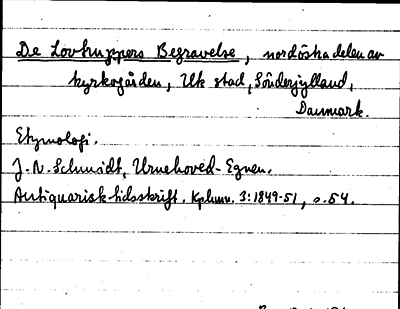 De Lovhuggers Begravelse, nordöstra delen av
kyrkogården, Uk stad, Sönderjylland,
Danmark.
Etymologi.
J. N. Schmidt, Urnehoved-Egnen.
Antiquarisk tidsskrift. Kphmn. 3:1849-51, s. 54.